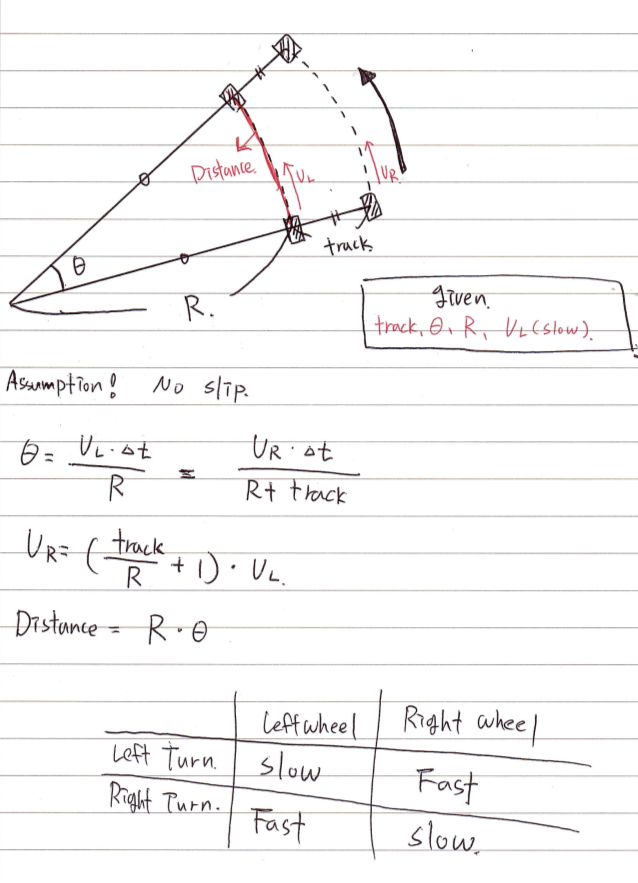 Distance.
U_L
U_R.
track.
θ
R.
given.
track, θ, R, U_L (slow).
Assumption! No slip.
θ = U_L · Δt / R = U_R · Δt / R + track
U_R = (track / R + 1) · U_L.
Distance = R · θ
Left wheel Right wheel
Left Turn. slow Fast
Right Turn. Fast slow.